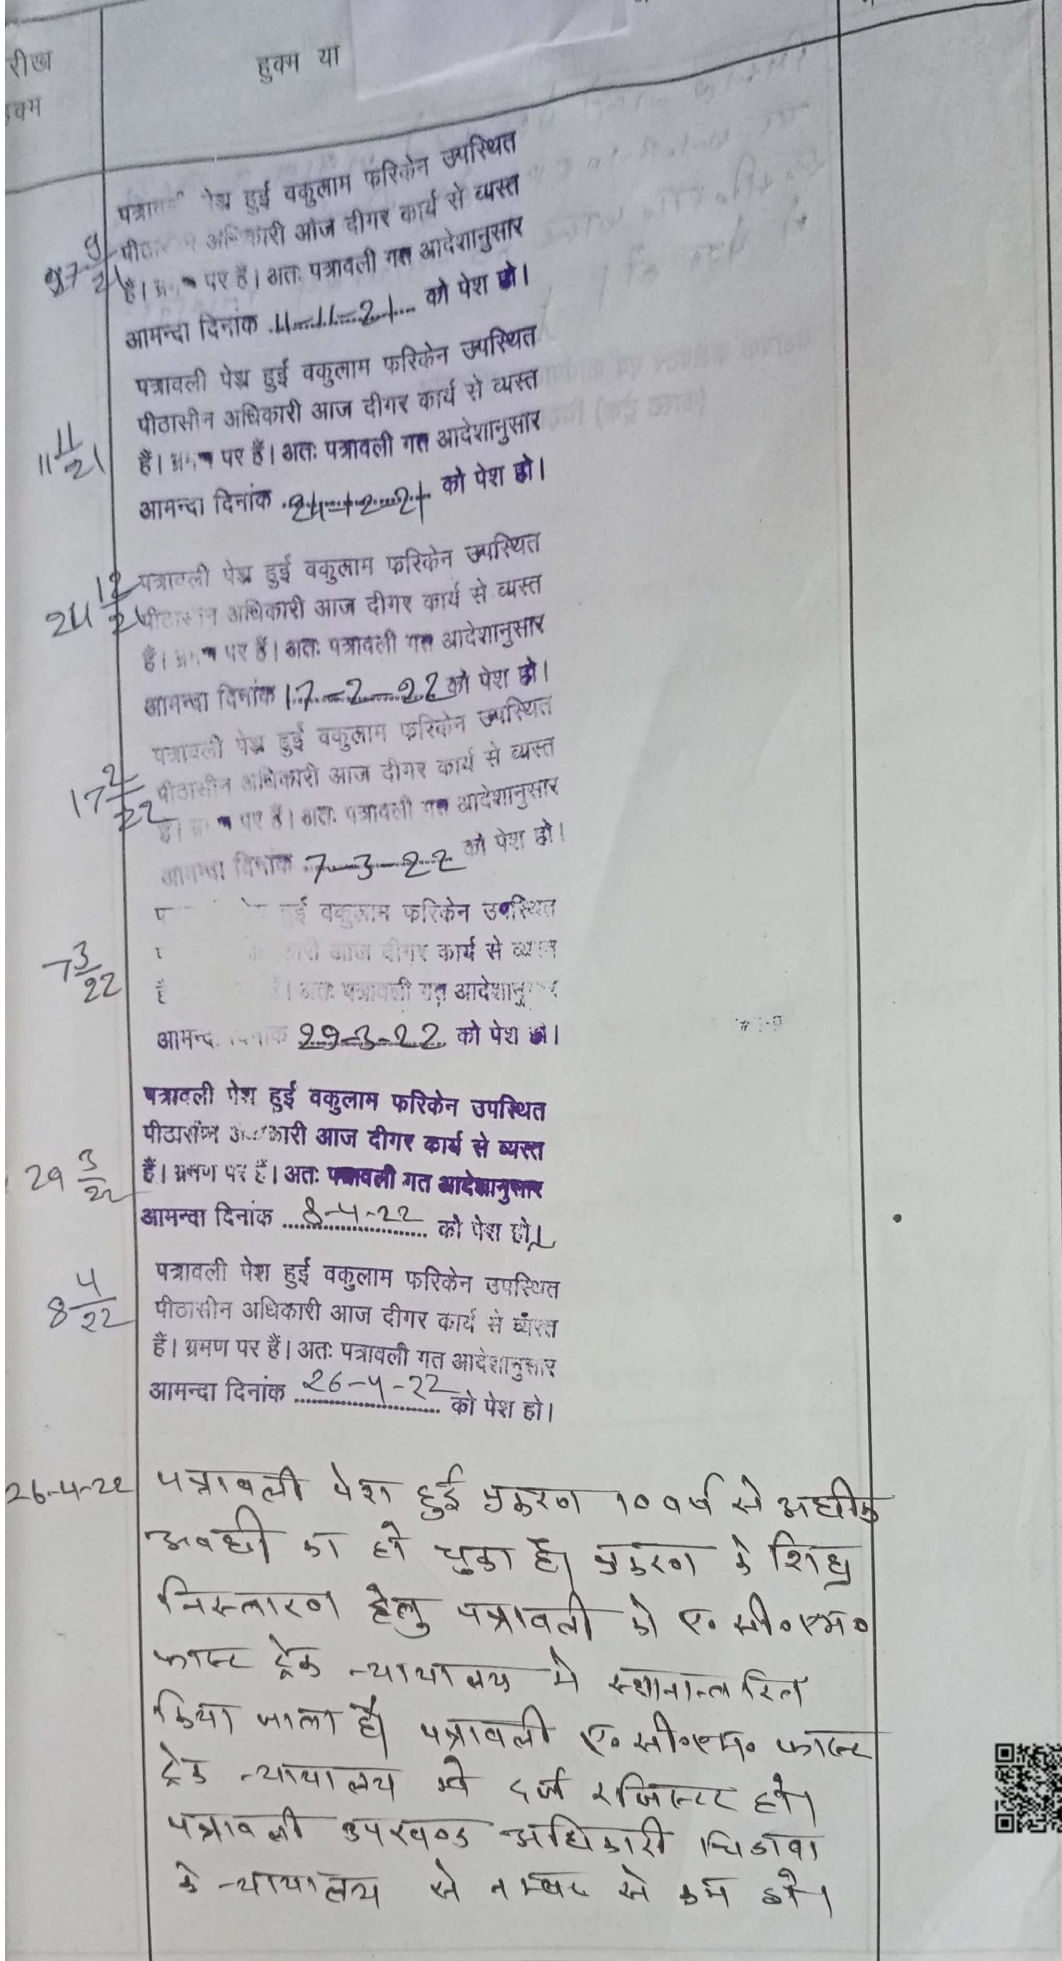 रीख
हुक्म या
क्म
पेश हुई वकुलाम फरिकेन उपस्थित
आज दीगर कार्य से व्यस्त
है। पर हैं। अतः पत्रावली गत आदेशानुसार
आमन्दा दिनांक 11-11-21 को पेश हो।
पत्रावली पेश हुई वकुलाम फरिकेन उपस्थित
पीठासीन अधिकारी आज दीगर कार्य से व्यस्त
11 11/21
हैं। पर हैं। अतः पत्रावली गत आदेशानुसार
आमन्दा दिनांक 24-12-21 को पेश हो।
24 12/21
पत्रावली पेश हुई वकुलाम फरिकेन उपस्थित
अधिकारी आज दीगर कार्य से व्यस्त
हैं। पर हैं। अतः पत्रावली गत आदेशानुसार
आमन्दा दिनांक 17-2-22 को पेश हो।
पत्रावली पेश हुई वकुलाम फरिकेन उपस्थित
17 2/22
पीठासीन अधिकारी आज दीगर कार्य से व्यस्त
पर हैं। अतः पत्रावली गत आदेशानुसार
आमन्दा दिनांक 7-3-22 को पेश हो।
हुई वकुलाम फरिकेन उपस्थित
7 3/22
आज दीगर कार्य से व्यस्त
अतः पत्रावली गत
29-3-22 को पेश हो।
पत्रावली पेश हुई वकुलाम फरिकेन उपस्थित
पीठासीन आज दीगर कार्य से व्यस्त
29 3/22
हैं। भ्रमण पर हैं। अतः पत्रावली गत आदेशानुसार
आमन्दा दिनांक 8-4-22 को पेश हो।
पत्रावली पेश हुई वकुलाम फरिकेन उपस्थित
8 4/22
पीठासीन अधिकारी आज दीगर कार्य से व्यस्त
हैं। भ्रमण पर हैं। अतः पत्रावली गत आदेशानुसार
आमन्दा दिनांक 26-4-22 को पेश हो।
26-4-22 पत्रावली पेश हुई प्रकरण 10 वर्ष से अधीक
अवधी का हो चुका है। प्रकरण के शिघ्र
निस्तारण हेतु पत्रावली को ए॰ सी॰ एम॰
फास्ट ट्रेक न्यायालय मे स्थानान्तरित
किया जाता है। पत्रावली ए॰ सी॰ एम॰ फास्ट
ट्रेक न्यायालय मे दर्ज रजिस्टर हो।
पत्रावली उपखण्ड अधिकारी चिडावा
के न्यायालय से नम्बर से कम हो।